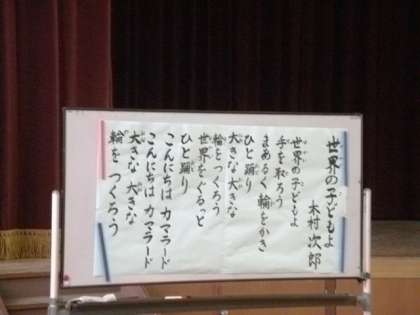 世界の子どもよ
木村次郎
世界の子どもよ
手を取ろう
まあるく輪をかき
ひと踊り
大きな大きな
輪をつくろう
世界をぐるっと
ひと踊り
こんにちは カマラード
こんにちは カマラード
大きな 大きな
輪を つくろう